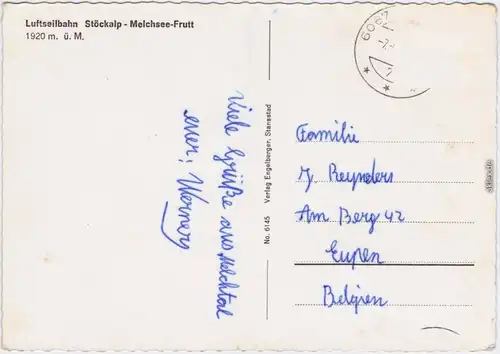 Luftseilbahn Stöckalp - Melchsee-Frutt
1920 m. ü. M.
6067
Viele Grüße aus Melchtal
euer:
No. 6145 Verlag Engelberger, Stansstad
Familie
J. Reynders
Am Berg 42
Eupen
Belgien